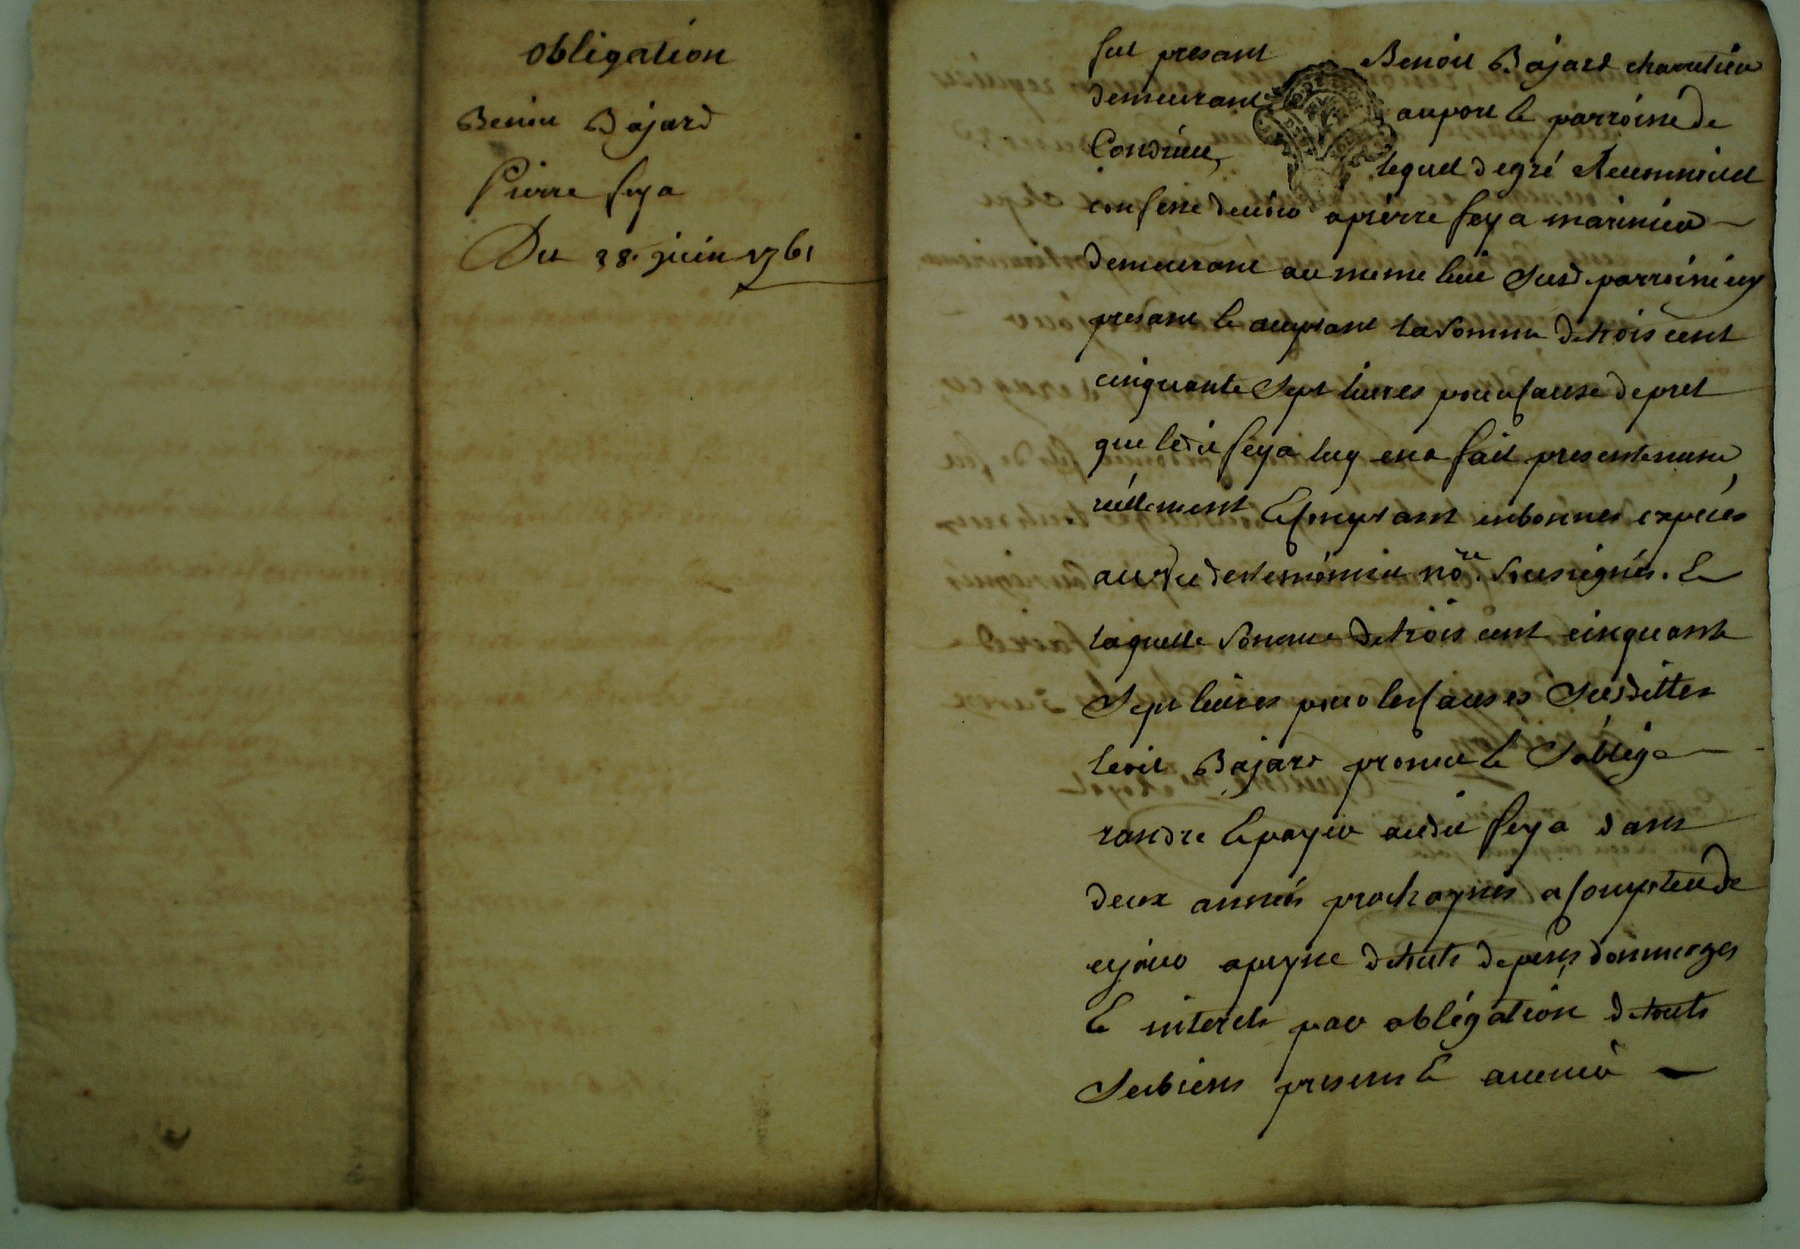 obligation
Benoit Bajard
Pierre feya
Du 28 juin 1761
fut presant Benoit Bajard charretier
demeurant au port le parroisse de
Condrieu, lequel de gré a reconnu et
confessé devoir a pierre feya marinier
demeurant au meme lieu susd. parroisse icy
presant le acceptant la somme de trois cent
cinquante sept livres pour cause de pret
que ledit feya luy en a fait presentement
reéllement et comptant en bonnes espèces
au vû des temoins no.re soussignés. et
laquelle somme de trois cent cinquante
sept livres pour les causes susdittes
ledit Bajard promet et s'oblige
randre et payer audit feya dans
deux années prochaynes a compter de
cejour a peyne de touts depens dommages
et interets par obligation de touts
ses biens presens et avenir